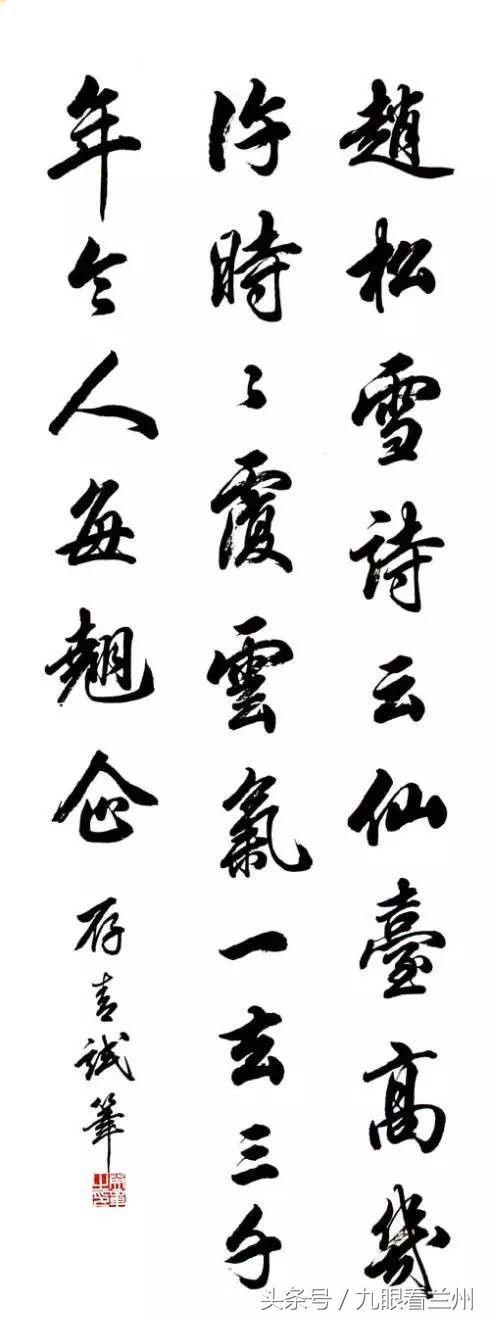 趙松雪詩云仙臺高幾
許時々覆雲氣一去三千
年令人每翹企
存青試筆
头条号/九眼看兰州